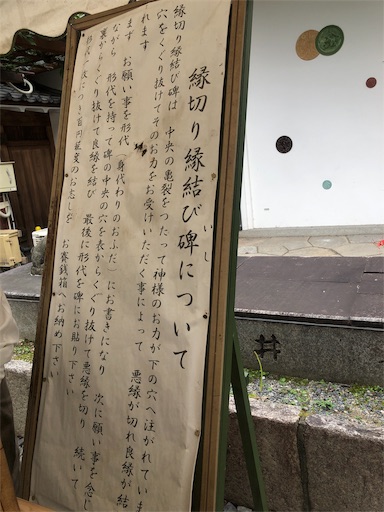 縁切り縁結び碑について
いし
縁切り縁結び碑は 中央の亀裂をつたって神様のお力が下の穴へ注がれていま
穴をくぐり抜けてそのお力をお受けいただく事によって 悪縁が切れ良縁が結
れます
まず お願い事を形代（身代わりのおふだ）にお書きになり 次に願い事を念じ
ながら 形代を持って碑の中央の穴を表からくぐり抜けて悪縁を切り 続いて
裏からくぐり抜けて良縁を結び 最後に形代を碑にお貼り下さい
のお志しを お賽銭箱へお納め下さ